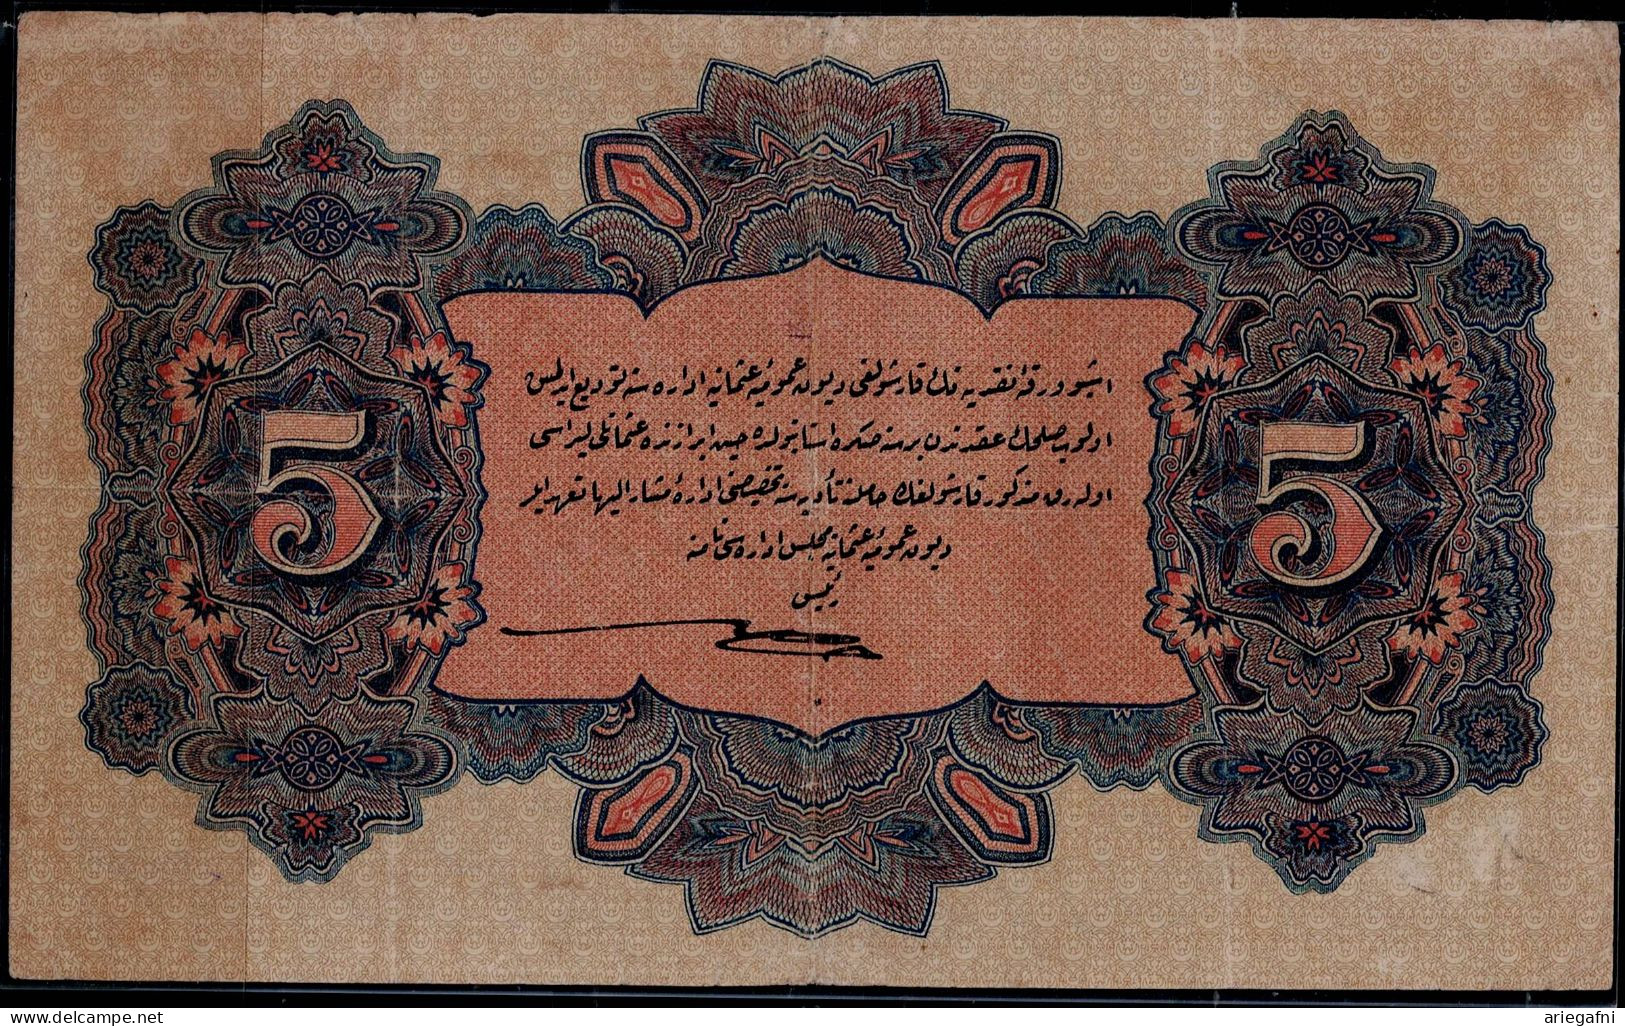 5
اشبو ورقهٔ نقدیه نك قارشولغی دیون عمومیهٔ عثمانیه اداره سنه تودیع ایدلمش
اولوب صلحك عقدندن بر سنه صكره استانبولده حین ابرازنده عثمانلی لیراسی
اوله رق مذكور قارشولغك حاملنه تأدیه سنه تخصیصنی ادارهٔ مشار الیها تعهد ایلر
دیون عمومیهٔ عثمانیه مجلس اداره سی نامنه
رئیس
5
delcampe.net
ariegafni